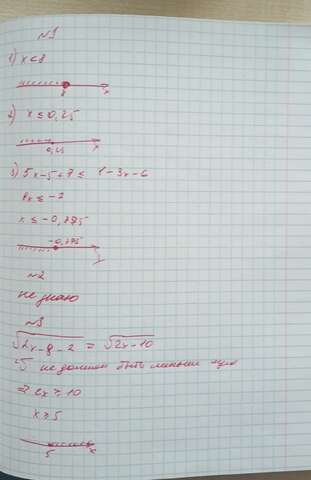 №1
1) x < 8
8 x
2) x ≤ 0,25
0,25 x
3) 5x-5+7 ≤ 1-3x-6
8x ≤ -7
x ≤ -0,875
-0,875
x
№2
не знаю
№3
√2x-8-2 = √2x-10
√ не должен быть меньше нуля
⇒ 2x ≥ 10
x ≥ 5
5 x